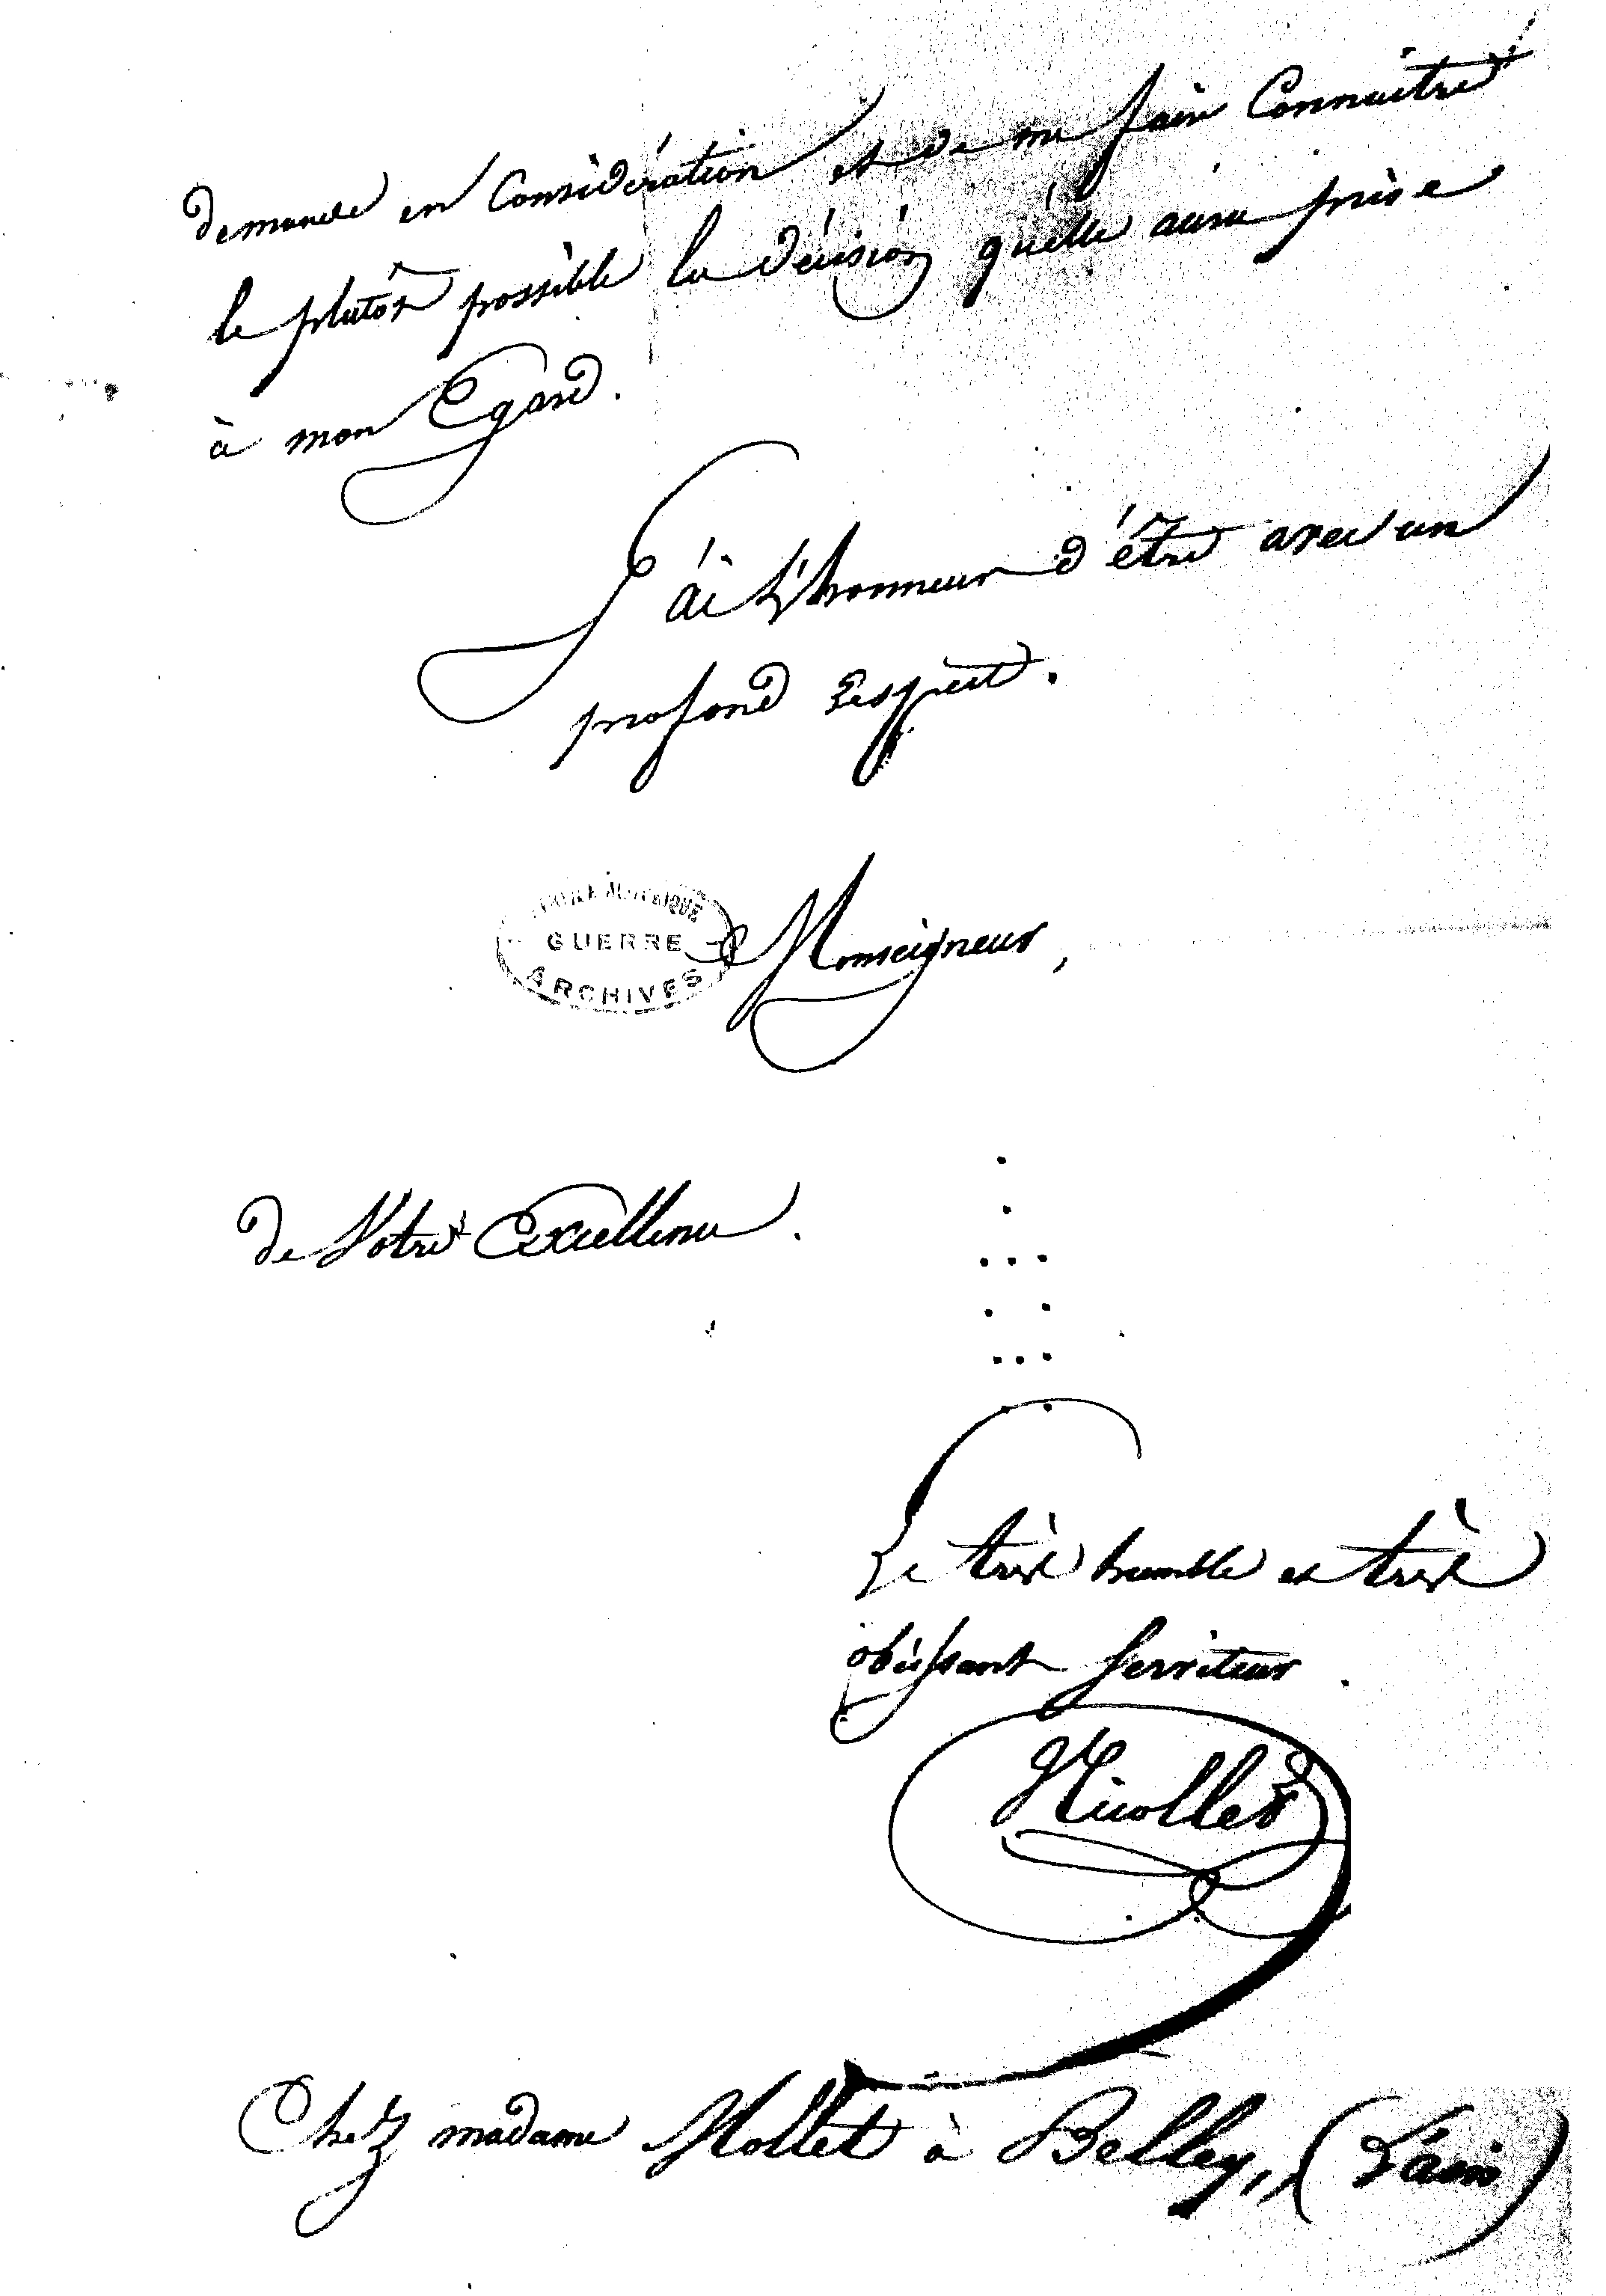 demande en Considération et de me faire Connaître
le plutôt possible la décision qu'elle aura prise
à mon Egard.
J'ai l'honneur d'être avec un
profond respect.
GUERRE
ARCHIVES
Monseigneur,
de Votre Excellence.
Le très humble et très
obéissant serviteur.
Nicollet
Chez madame Mollet à Belley, (L'ain)